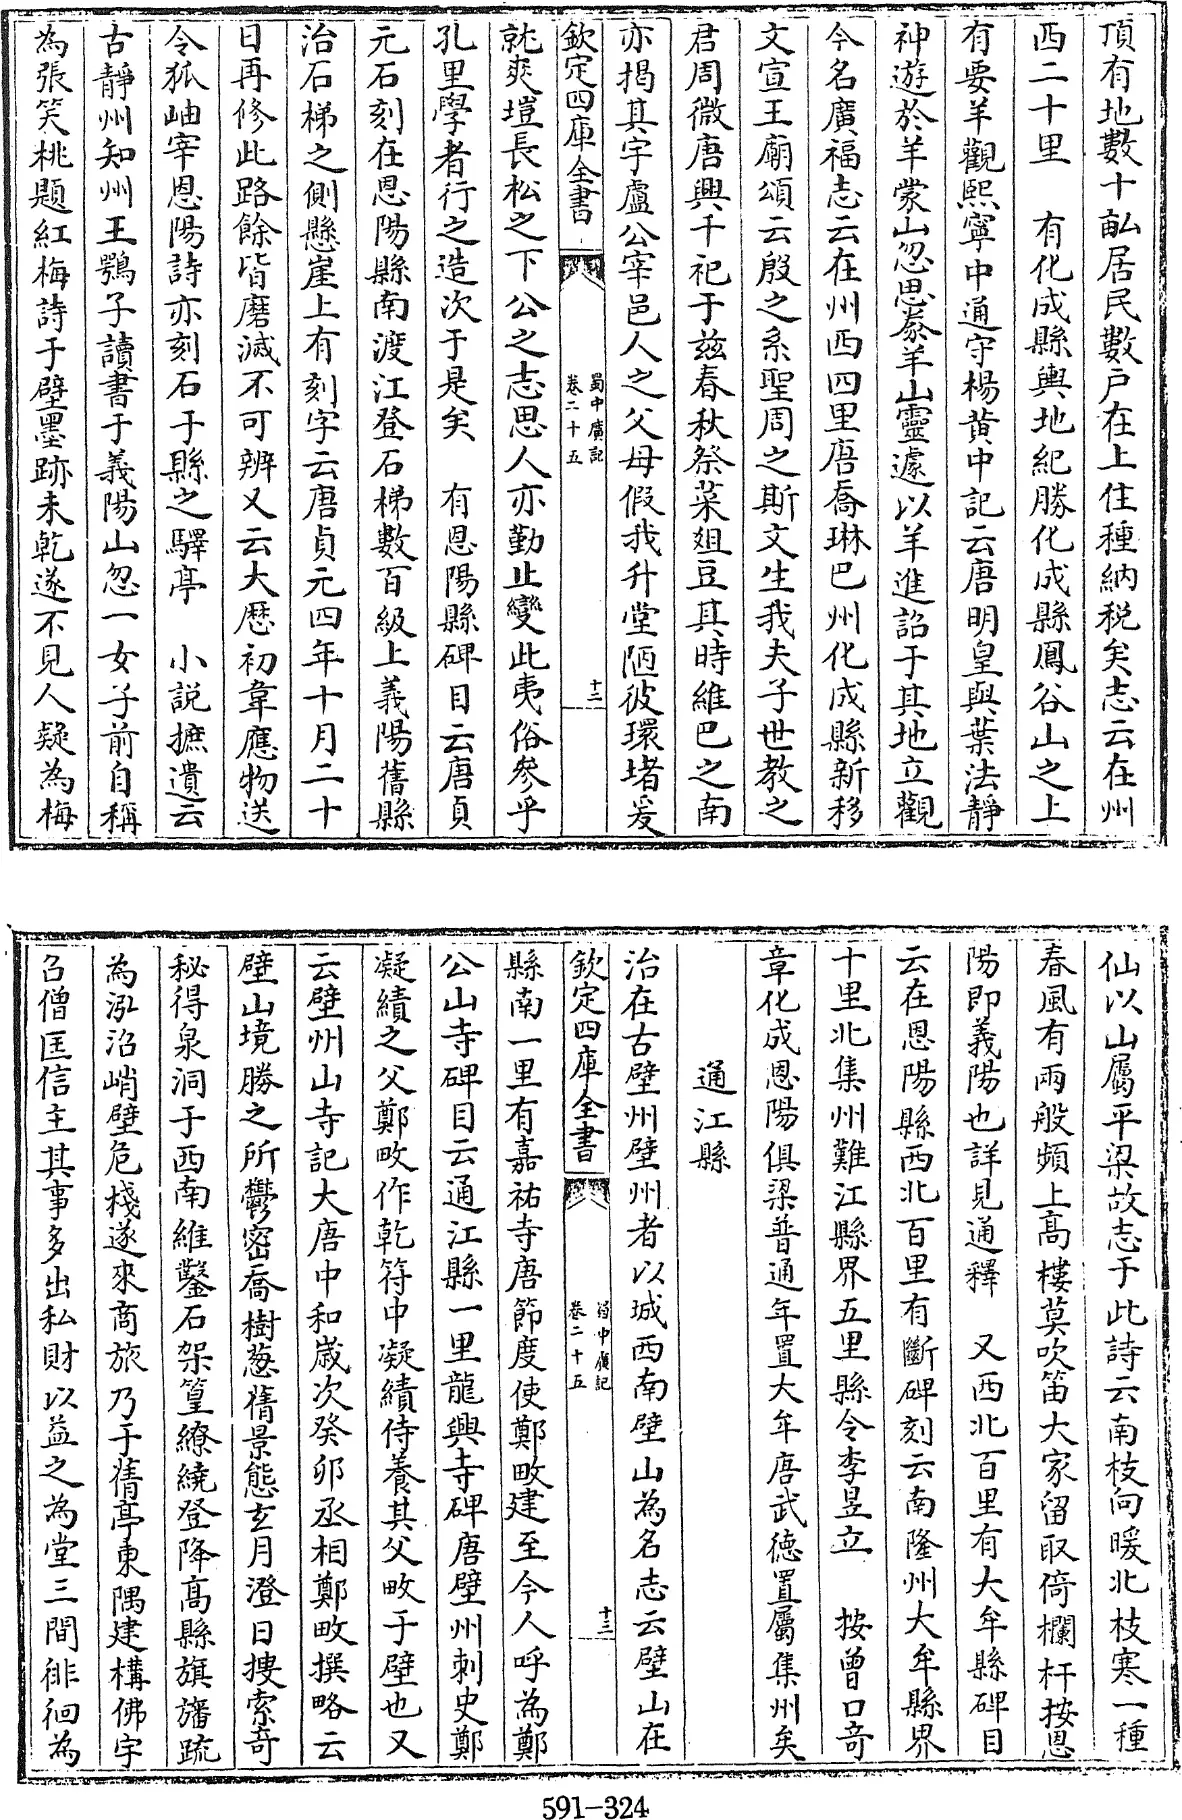 頂有地數十畝居民數户在上住種納税矣志云在州
西二十里　有化成縣輿地紀勝化成縣鳳谷山之上
有要羊觀熙寧中通守楊黄中記云唐明皇與葉法靜
神遊於羊蒙山忽思泰羊山靈遽以羊進詔于其地立觀
今名廣福志云在州西四里唐喬琳巴州化成縣新移
文宣王廟頌云殷之系聖周之斯文生我夫子世教之
君周微唐興千祀于兹春秋祭菜俎豆其時維巴之南
亦揭其字盧公宰邑人之父母假我升堂陋彼環堵爰
欽定四庫全書
蜀中廣記
卷二十五
十二
就爽塏長松之下公之志思人亦勤止變此夷俗參乎
孔里學者行之造次于是矣　有恩陽縣碑目云唐貞
元石刻在恩陽縣南渡江登石梯數百級上義陽舊縣
治石梯之側懸崖上有刻字云唐貞元四年十月二十
日再修此路餘皆磨滅不可辨又云大歴初韋應物送
令狐岫宰恩陽詩亦刻石于縣之驛亭　小説摭遺云
古靜州知州王鶚子讀書于義陽山忽一女子前自稱
為張笑桃題紅梅詩于壁墨跡未乾遂不見人疑為梅
仙以山屬平梁故志于此詩云南枝向暖北枝寒一種
春風有兩般頻上高樓莫吹笛大家留取倚欄杆按恩
陽即義陽也詳見通釋　又西北百里有大牟縣碑目
云在恩陽縣西北百里有斷碑刻云南隆州大牟縣界
十里北集州難江縣界五里縣令李昱立　按曾口竒
章化成恩陽俱梁普通年置大牟唐武德置屬集州矣
通江縣
治在古壁州壁州者以城西南壁山為名志云壁山在
欽定四庫全書
蜀中廣記
卷二十五
十三
縣南一里有嘉祐寺唐節度使鄭畋建至今人呼為鄭
公山寺碑目云通江縣一里龍興寺碑唐壁州刺史鄭
凝績之父鄭畋作乾符中凝績侍養其父畋于壁也又
云壁州山寺記大唐中和嵗次癸卯丞相鄭畋撰略云
壁山境勝之所鬱密喬樹葱蒨景態玄月澄日搜索竒
秘得泉洞于西南維鑿石架篁繚繞登降高縣旗旛疏
為泓沼峭壁危棧遂來商旅乃于蒨亭東隅建構佛宇
召僧匡信主其事多出私財以益之為堂三間徘徊為
591-324